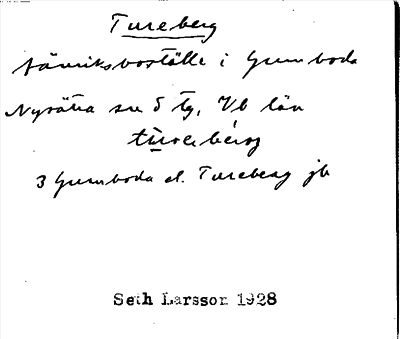 Tureberg
fänriksboställe i Gumboda
Nysätra sn 5 tg, Vb län
tu̱rebærj
3 Gumboda el. Tureberg jb
Seth Larsson 1928